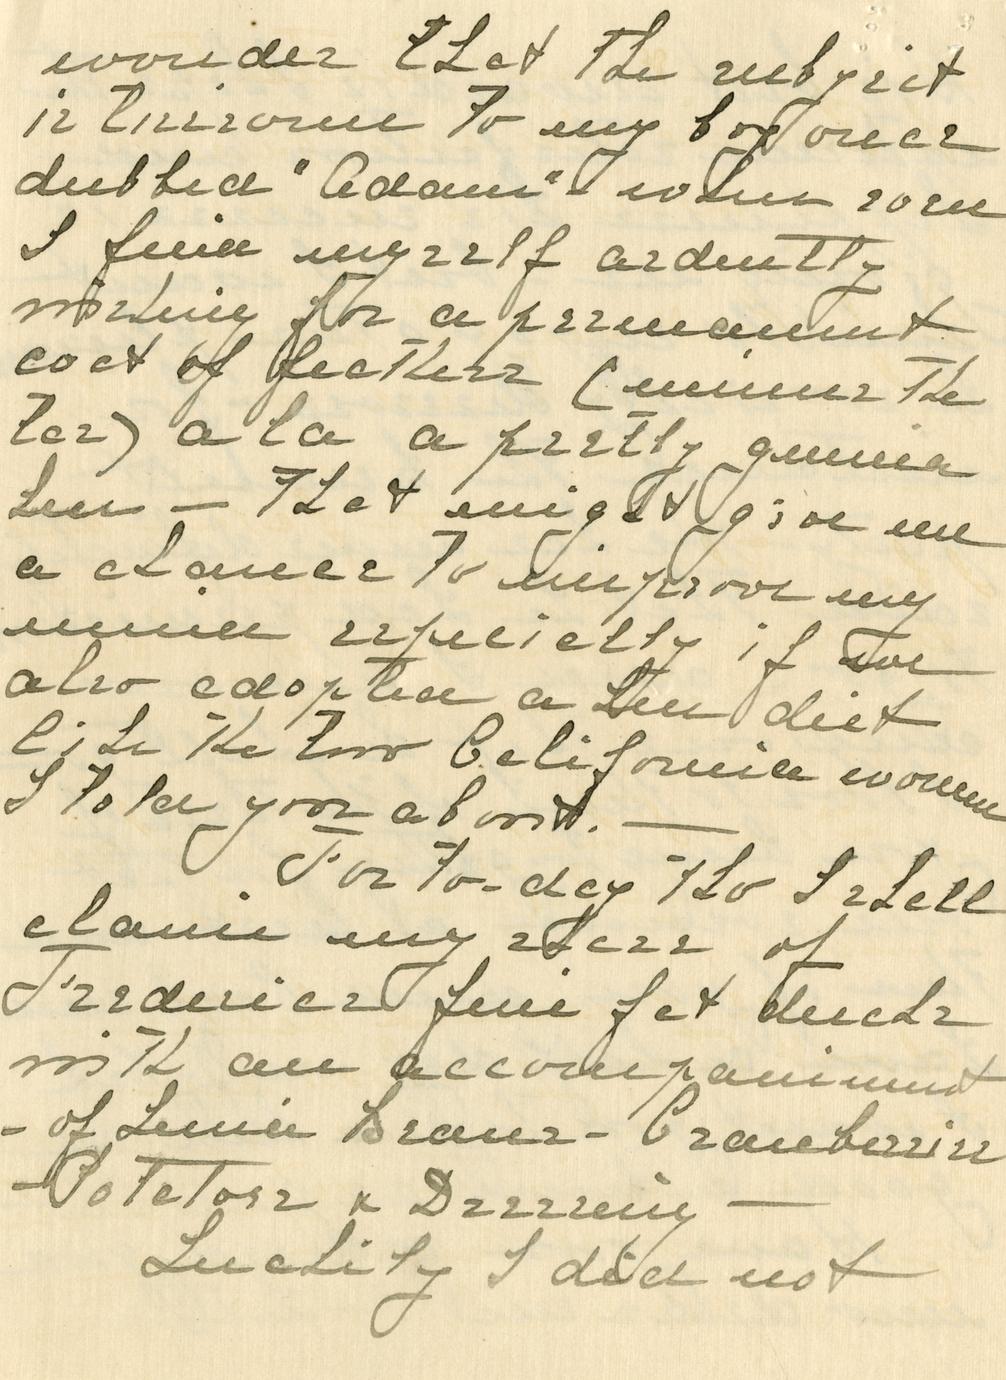 wonder that the subject
is tiresome to my boy once
dubbed "Adam" - when soon
I find myself ardently
wishing for a permanent
coat of feathers (minus the
tar) a la a pretty guinea
hen — That might give me
a chance to improve my
mind especially if we
also adopted a hen diet
like the two California women
I told you about. —
For to-day tho I shall
claim my share of
Fredericas fine fat ducks
with an accompaniment
- of Lima Beans - Cranberries
- Potatoes & Dressing —
Luckily I did not